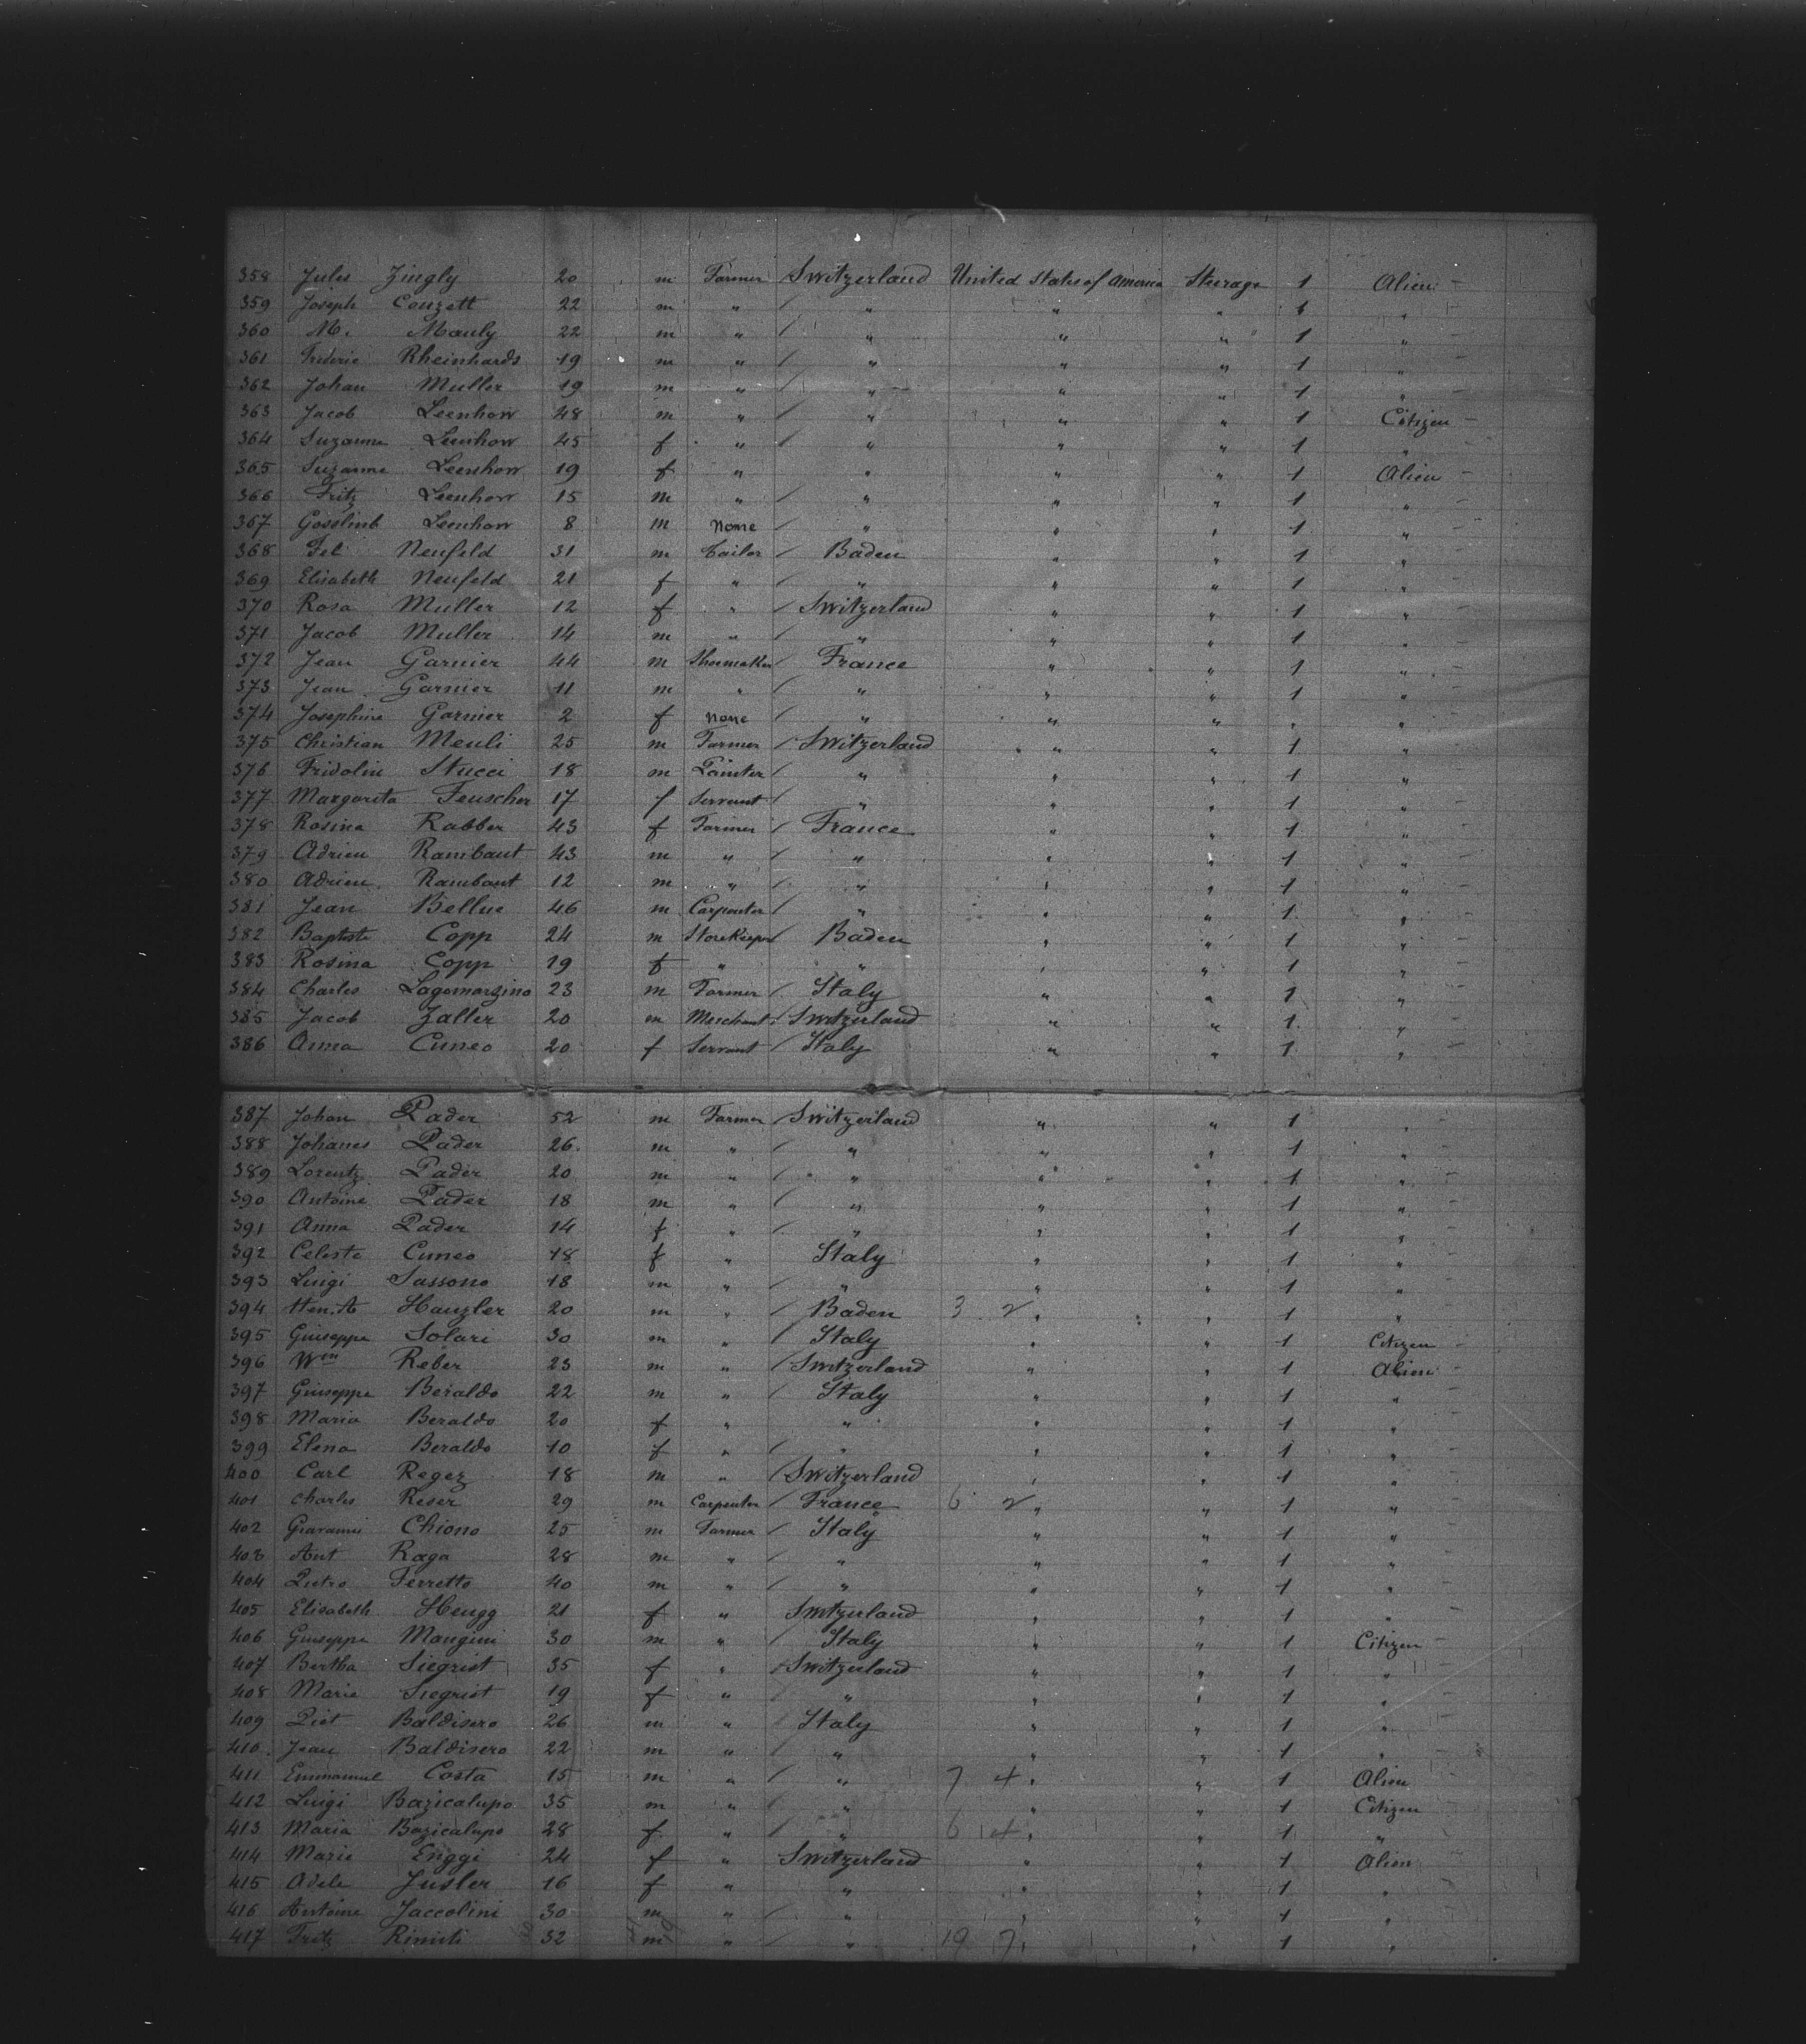 358 Jules Zingly 20 m Farmer Switzerland United States of America Steerage 1 Alien
359 Joseph Couzett 22 m " " " " 1 "
360 M. Mauly 22 m " " " " 1 "
361 Frederic Rheinhards 19 m " " " " 1 "
362 Johan Muller 19 m " " " " 1 "
363 Jacob Leenhow 48 m " " " " 1 Citizen
364 Suzanne Leenhow 45 f " " " " 1 "
365 Suzanne Leenhow 19 f " " " " 1 Alien
366 Fritz Leenhow 15 m " " " " 1 "
367 Leenhow 8 m None " " " 1 "
368 Fel Neufeld 31 m Tailor Baden " " 1 "
369 Elisabeth Neufeld 21 f " " " " 1 "
370 Rosa Muller 12 f " Switzerland " " 1 "
371 Jacob Muller 14 m " " " " 1 "
372 Jean Garnier 44 m Shoemaker France " " 1 "
373 Jean Garnier 11 m " " " " 1 "
374 Josephine Garnier 2 f None " " " " "
375 Christian Meuli 25 m Farmer Switzerland " " 1 "
376 Fridolin Stucci 18 m Painter " " " 1 "
377 Margarita Feuscher 17 f Servant " " " 1 "
378 Rosina Rabber 43 f Farmer France " " 1 "
379 Adrien Rambaut 43 m " " " " 1 "
380 Adrien Rambaut 12 m " " " " 1 "
381 Jean Bellue 46 m Carpenter " " " 1 "
382 Baptiste Copp 24 m Storekieper Baden " " 1 "
383 Rosina Copp 19 f " " " " 1 "
384 Charles Lagomarzino 23 m Farmer Italy " " 1 "
385 Jacob Zaller 20 m Merchant Switzerland " " 1 "
386 Anna Cuneo 20 f Servant Italy " " 1 "
387 Johan Pader 52 m Farmer Switzerland " " 1 "
388 Johanes Pader 26 m " " " " 1 "
389 Lorentz Pader 20 m " " " " 1 "
390 Antoine Pader 18 m " " " " 1 "
391 Anna Pader 14 f " " " " 1 "
392 Celeste Cuneo 18 f " Italy " " 1 "
393 Luigi Sassono 18 m " " " " 1 "
394 Hauzler 20 m " Baden 3 2 " " 1 "
395 Giuseppe Solari 30 m " Italy " " 1 Citizen
396 Wm Reber 23 m " Switzerland " " 1 Alien
397 Giuseppe Beraldo 22 m " Italy " " 1 "
398 Maria Beraldo 20 f " " " " 1 "
399 Elena Beraldo 10 f " " " " 1 "
400 Carl Regez 18 m " Switzerland " " 1 "
401 Charles Reser 29 m Carpenter France 6 2 " " 1 "
402 Chiono 25 m Farmer Italy " " 1 "
403 Ant Raga 28 m " " " " 1 "
404 Pietro Ferretto 40 m " " " " 1 "
405 Elisabeth Hengg 21 f " Switzerland " " 1 "
406 Giuseppe Mangini 30 m " Italy " " 1 Citizen
407 Bertha Siegrist 35 f " Switzerland " " 1 "
408 Marie Siegrist 19 f " " " " 1 "
409 Piet Baldisero 26 m " Italy " " 1 "
410 Jean Baldisero 22 m " " " " 1 "
411 Emmanuel Costa 15 m " " 7 4 " " 1 Alien
412 Luigi Bazicalupo 35 m " " " " 1 Citizen
413 Maria Bazicalupo 28 f " " 6 4 " " 1 "
414 Marie Enggi 24 f " Switzerland " " 1 Alien
415 Adele Jusler 16 f " " " " 1 "
416 Antoine Jaccolini 30 m " " " " 1 "
417 Fritz Rinisti 32 m " " 19 7 " " 1 "